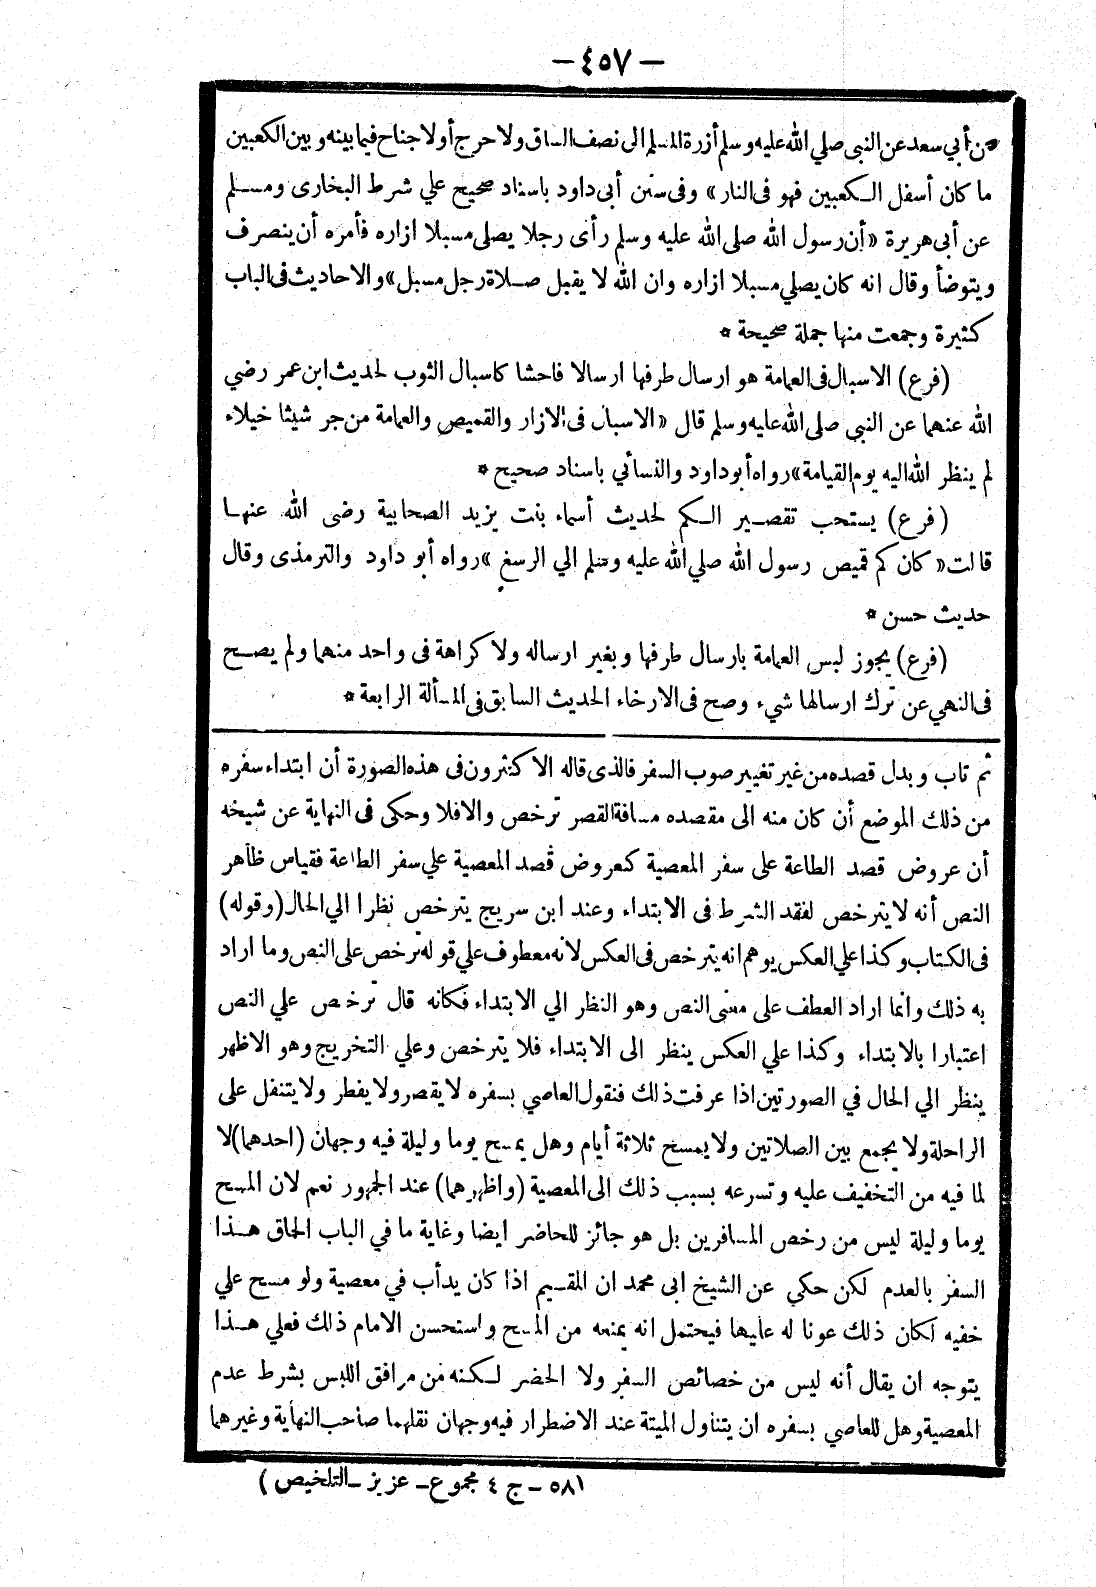 — ٤٥٧ —
عن أبي سعد عن النبى صلي الله عليه وسلم أزرة المسلم الى نصف الساق ولا حرج أو لا جناح فيما بينه وبين الكعبين
ما كان أسفل الكعبين فهو فى النار» وفى سنن أبى داود باسناد صحيح علي شرط البخارى ومسلم
عن أبى هريرة «أن رسول الله صلى الله عليه وسلم رأى رجلا يصلى مسبلا ازاره فأمره أن ينصرف
ويتوضأ وقال انه كان يصلي مسبلا ازاره وان الله لا يقبل صلاة رجل مسبل» والاحاديث فى الباب
كثيرة وجمعت منها جملة صحيحة *
(فرع) الاسبال فى العمامة هو ارسال طرفها ارسالا فاحشا كاسبال الثوب لحديث ابن عمر رضي
الله عنهما عن النبي صلى الله عليه وسلم قال «الاسبال فى الازار والقميص والعمامة من جر شيئا خيلاء
لم ينظر الله اليه يوم القيامة» رواه أبو داود والنسائي باسناد صحيح *
(فرع) يستحب تقصير الكم لحديث أسماء بنت يزيد الصحابية رضى الله عنها
قالت «كان كم قميص رسول الله صلي الله عليه وسلم الي الرسغ» رواه أبو داود والترمذى وقال
حديث حسن *
(فرع) يجوز لبس العمامة بارسال طرفها وبغير ارساله ولا كراهة فى واحد منهما ولم يصح
فى النهي عن ترك ارسالها شيء وصح فى الارخاء الحديث السابق فى المسألة الرابعة *
ثم تاب وبدل قصده من غير تغيير صوب السفر فالذى قاله الاكثرون فى هذه الصورة أن ابتداء سفره
من ذلك الموضع أن كان منه الى مقصده مسافة القصر ترخص والافلا وحكى فى النهاية عن شيخه
أن عروض قصد الطاعة على سفر المعصية كعروض قصد المعصية علي سفر الطاعة فقياس ظاهر
النص أنه لا يترخص لفقد الشرط فى الابتداء وعند ابن سريج يترخص نظرا الي الحال (وقوله)
فى الكتاب وكذا علي العكس يوهم انه يترخص فى العكس لانه معطوف علي قوله ترخص على النص وما اراد
به ذلك وانما اراد العطف على معنى النص وهو النظر الي الابتداء فكانه قال ترخص علي النص
اعتبارا بالابتداء وكذا علي العكس ينظر الى الابتداء فلا يترخص وعلي التخريج وهو الاظهر
ينظر الي الحال في الصورتين اذا عرفت ذلك فنقول العاصي بسفره لا يقصر ولا يفطر ولا يتنفل على
الراحلة ولا يجمع بين الصلاتين ولا يمسح ثلاثة أيام وهل يمسح يوما وليلة فيه وجهان (احدهما) لا
لما فيه من التخفيف عليه وتسرعه بسبب ذلك الى المعصية (واظهرهما) عند الجمهور نعم لان المسح
يوما وليلة ليس من رخص المسافرين بل هو جائز للحاضر ايضا وغاية ما في الباب الحاق هذا
السفر بالعدم لكن حكي عن الشيخ ابى محمد ان المقيم اذا كان يدأب في معصية ولو مسح علي
خفيه لكان ذلك عونا له عليها فيحتمل انه يمنعه من المسح واستحسن الامام ذلك فعلي هذا
يتوجه ان يقال أنه ليس من خصائص السفر ولا الحضر لكنه من مرافق اللبس بشرط عدم
المعصية وهل للعاصي بسفره ان يتناول الميتة عند الاضطرار فيه وجهان نقلهما صاحب النهاية وغيرهما
(٥٨١ – ج ٤ مجموع – عزيز – التلخيص)